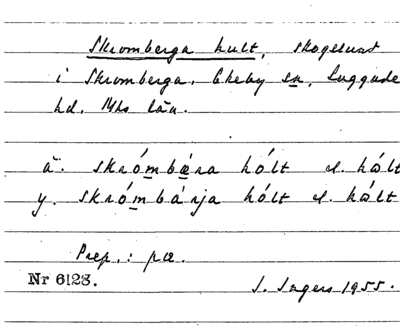 Skromberga hult, skogstrakt
i Skromberga, Ekeby sn, Luggude
hd, Mhs län.
ä. skrómbæra hólt el. hålt
y. skrómbárja hólt el. hålt
Prep.: pæ.
Nr 6128.
I. Ingers 1955.